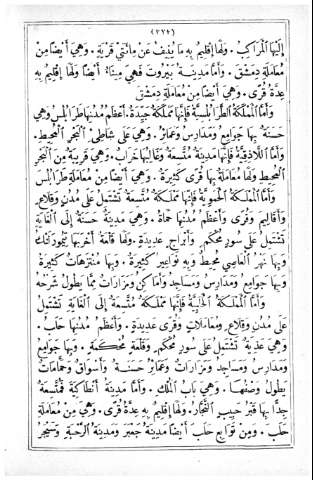 (٢٢٤)
إليها المراكب . ولها إقليم به ما ينيف عن مائتي قرية . وهي أيضا من
معاملة دمشق . وأما مدينة بيروت فهي مينا، أيضا ولها إقليم به
عدة قرى . وهي أيضا من معاملة دمشق
وأما المملكة الطرابلسية فإنها مملكة جيدة . أعظم مدنها طرابلس وهي
حسنة بها جوامع ومدارس وعمائر . وهي على شاطئ البحر المحيط .
وأما اللاذقية فإنها مدينة متسعة وغالبها خراب . وهي قريبة من البحر
المحيط ولها معاملة بها قرى كثيرة . وهي أيضا من معاملة طرابلس
وأما المملكة الحموية فإنها مملكة متسعة تشتمل على مدن وقلاع
وأقاليم وقرى وأعظم مدنها حماة . وهي مدينة حسنة إلى الغاية
تشتمل على سور محكم وأبراج عديدة . ولها قلعة أخربها تيمورلنك
وبها نهر العاصي محيط وبه نواعير كثيرة . وبها منتزهات كثيرة
وبها جوامع ومدارس ومساجد وأماكن ومزارات مما يطول شرحه
وأما المملكة الحلبية فإنها مملكة متسعة إلى الغاية تشتمل
على مدن وقلاع ومعاملات وقرى عديدة . وأعظم مدنها حلب .
وهي عذبة تشتمل على سور محكم وقلعة محكمة . وبها جوامع
ومدارس ومساجد ومزارات وعمائر حسنة وأسواق وحمامات
يطول وصفها . وهي باب الملك . وأما مدينة أنطاكية فمتسعة
جدا بها قبر حبيب النجار . ولها إقليم به عدة قرى . وهي من معاملة
حلب . ومن توابع حلب أيضا مدينة جعبر ومدينة الرحبة وسيجر